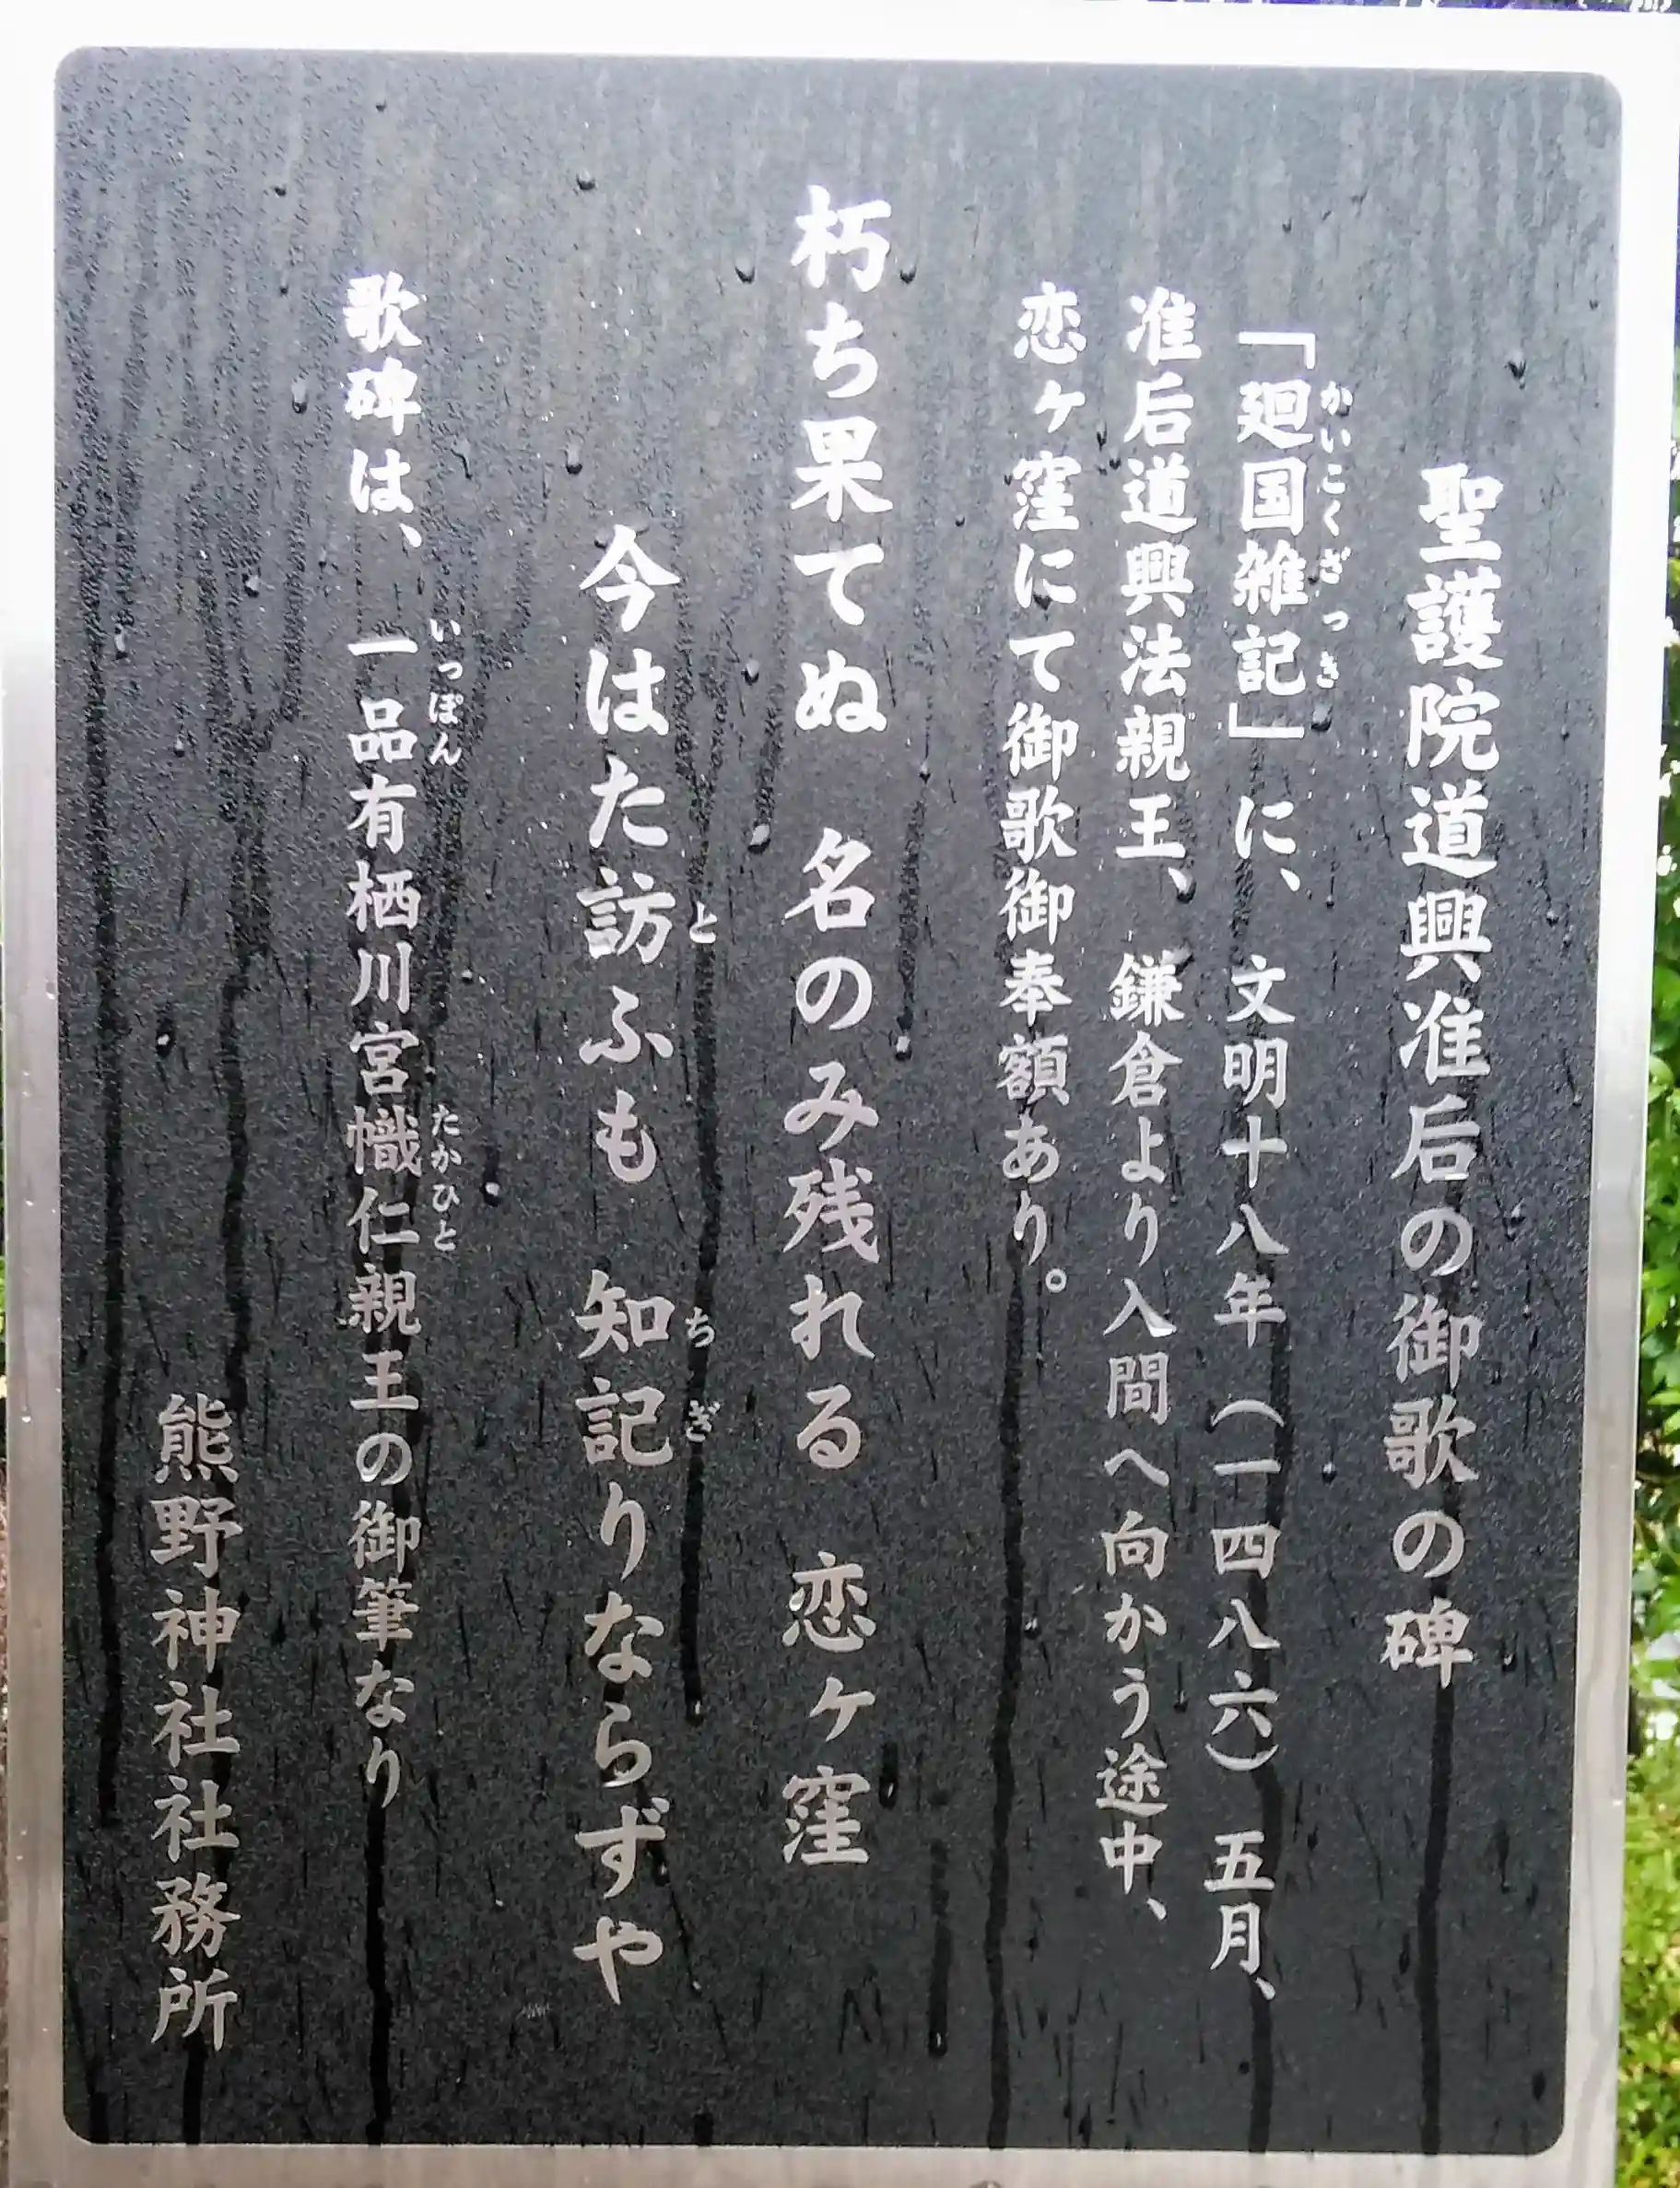 聖護院道興准后の御歌の碑
「廻国雑記」に、文明十八年（一四八六）五月、
かいこくざっき
准后道興法親王、鎌倉より入間へ向かう途中、
恋ヶ窪にて御歌御奉額あり。
朽ち果てぬ　名のみ残れる　恋ヶ窪
今はた訪ふも　知記りならずや
と　ちぎ
歌碑は、一品有栖川宮幟仁親王の御筆なり
いっぽん　たかひと
熊野神社社務所